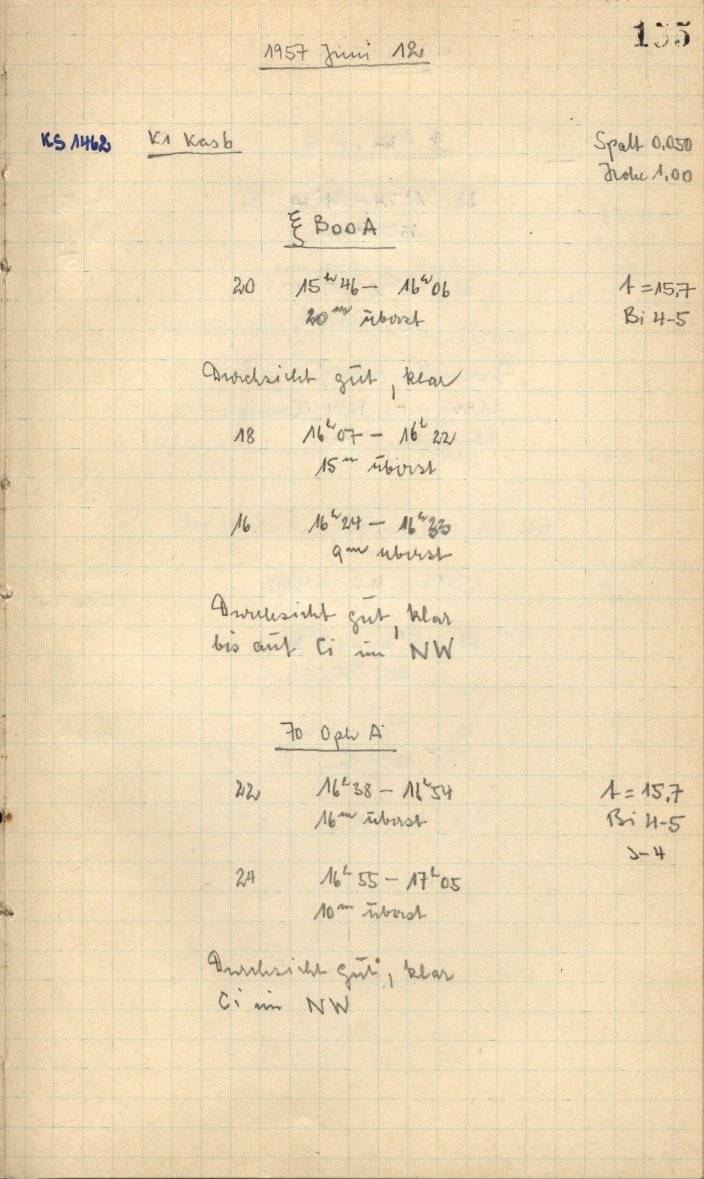 155
1957 Juni 12
KS 1462 K1 Kas b Spalt 0,050
Höhe 1,00
ξ Boo A
20 15ʰ46 – 16ʰ06 t = 15,7
20ᵐ überst Bi 4-5
Durchsicht gut, klar
18 16ʰ07 – 16ʰ22
15ᵐ überst
16 16ʰ24 – 16ʰ33
9ᵐ überst
Durchsicht gut, klar
bis auf Ci im NW
70 Oph A
22 16ʰ38 – 16ʰ54 t = 15,7
16ᵐ überst Bi 4-5
-4
24 16ʰ55 – 17ʰ05
10ᵐ überst
Durchsicht gut, klar
Ci im NW